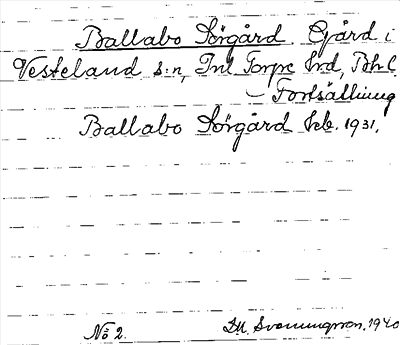 Ballabo Sörgård. Gård i
Vesteland s:n, Inl Torpe Hrd, Bhl.
– Fortsättning
Ballabo Sörgård Seb. 1931.
No 2.
D.N. Svenningsson, 1940